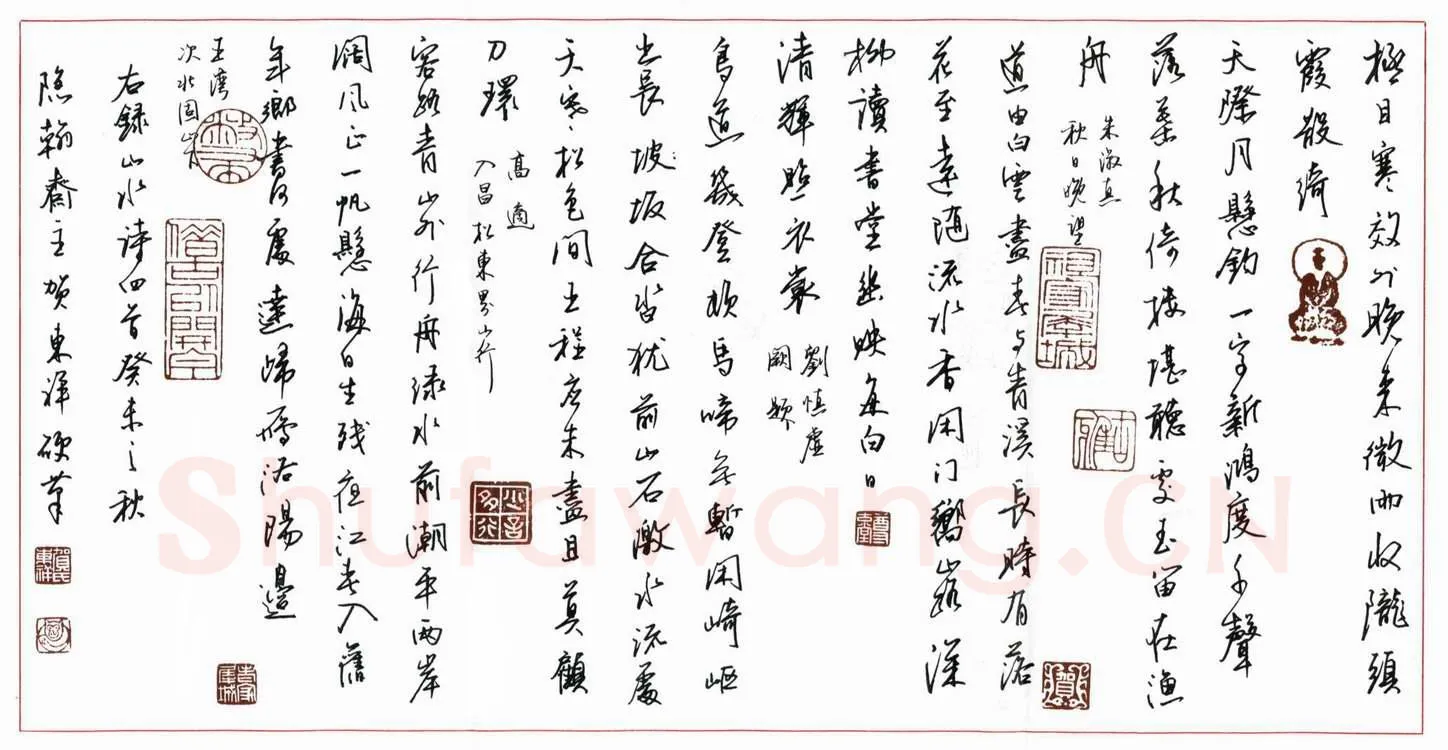 極目寒郊外晚來微雨收隴頭
霞散綺
天際月懸鈎一字新鴻度千聲
落葉秋倚樓堪聽處玉笛在漁
舟
朱淑真
秋日晚望
道由白雲盡春与青溪長時有落
花至遠隨流水香闲门嚮山路深
柳讀書堂幽映每白日
清輝照衣裳
劉慎虛
闕題
鳥道幾登頓馬啼無暫闲崎岖
出長坡坂合沓犹前山石激水流處
天寒松色間王程应未盡且莫顧
刀環
高適
入昌松東界山行
客路青山外行舟绿水前潮平兩岸
阔风正一帆懸海日生残夜江春入舊
年鄉書何處達歸雁洛陽邊
王湾
次北固山下
右録山水诗四首癸未之秋
隐翰齋主贺東祥硬筆
少言多行
賀氏東祥
Shufawang.CN